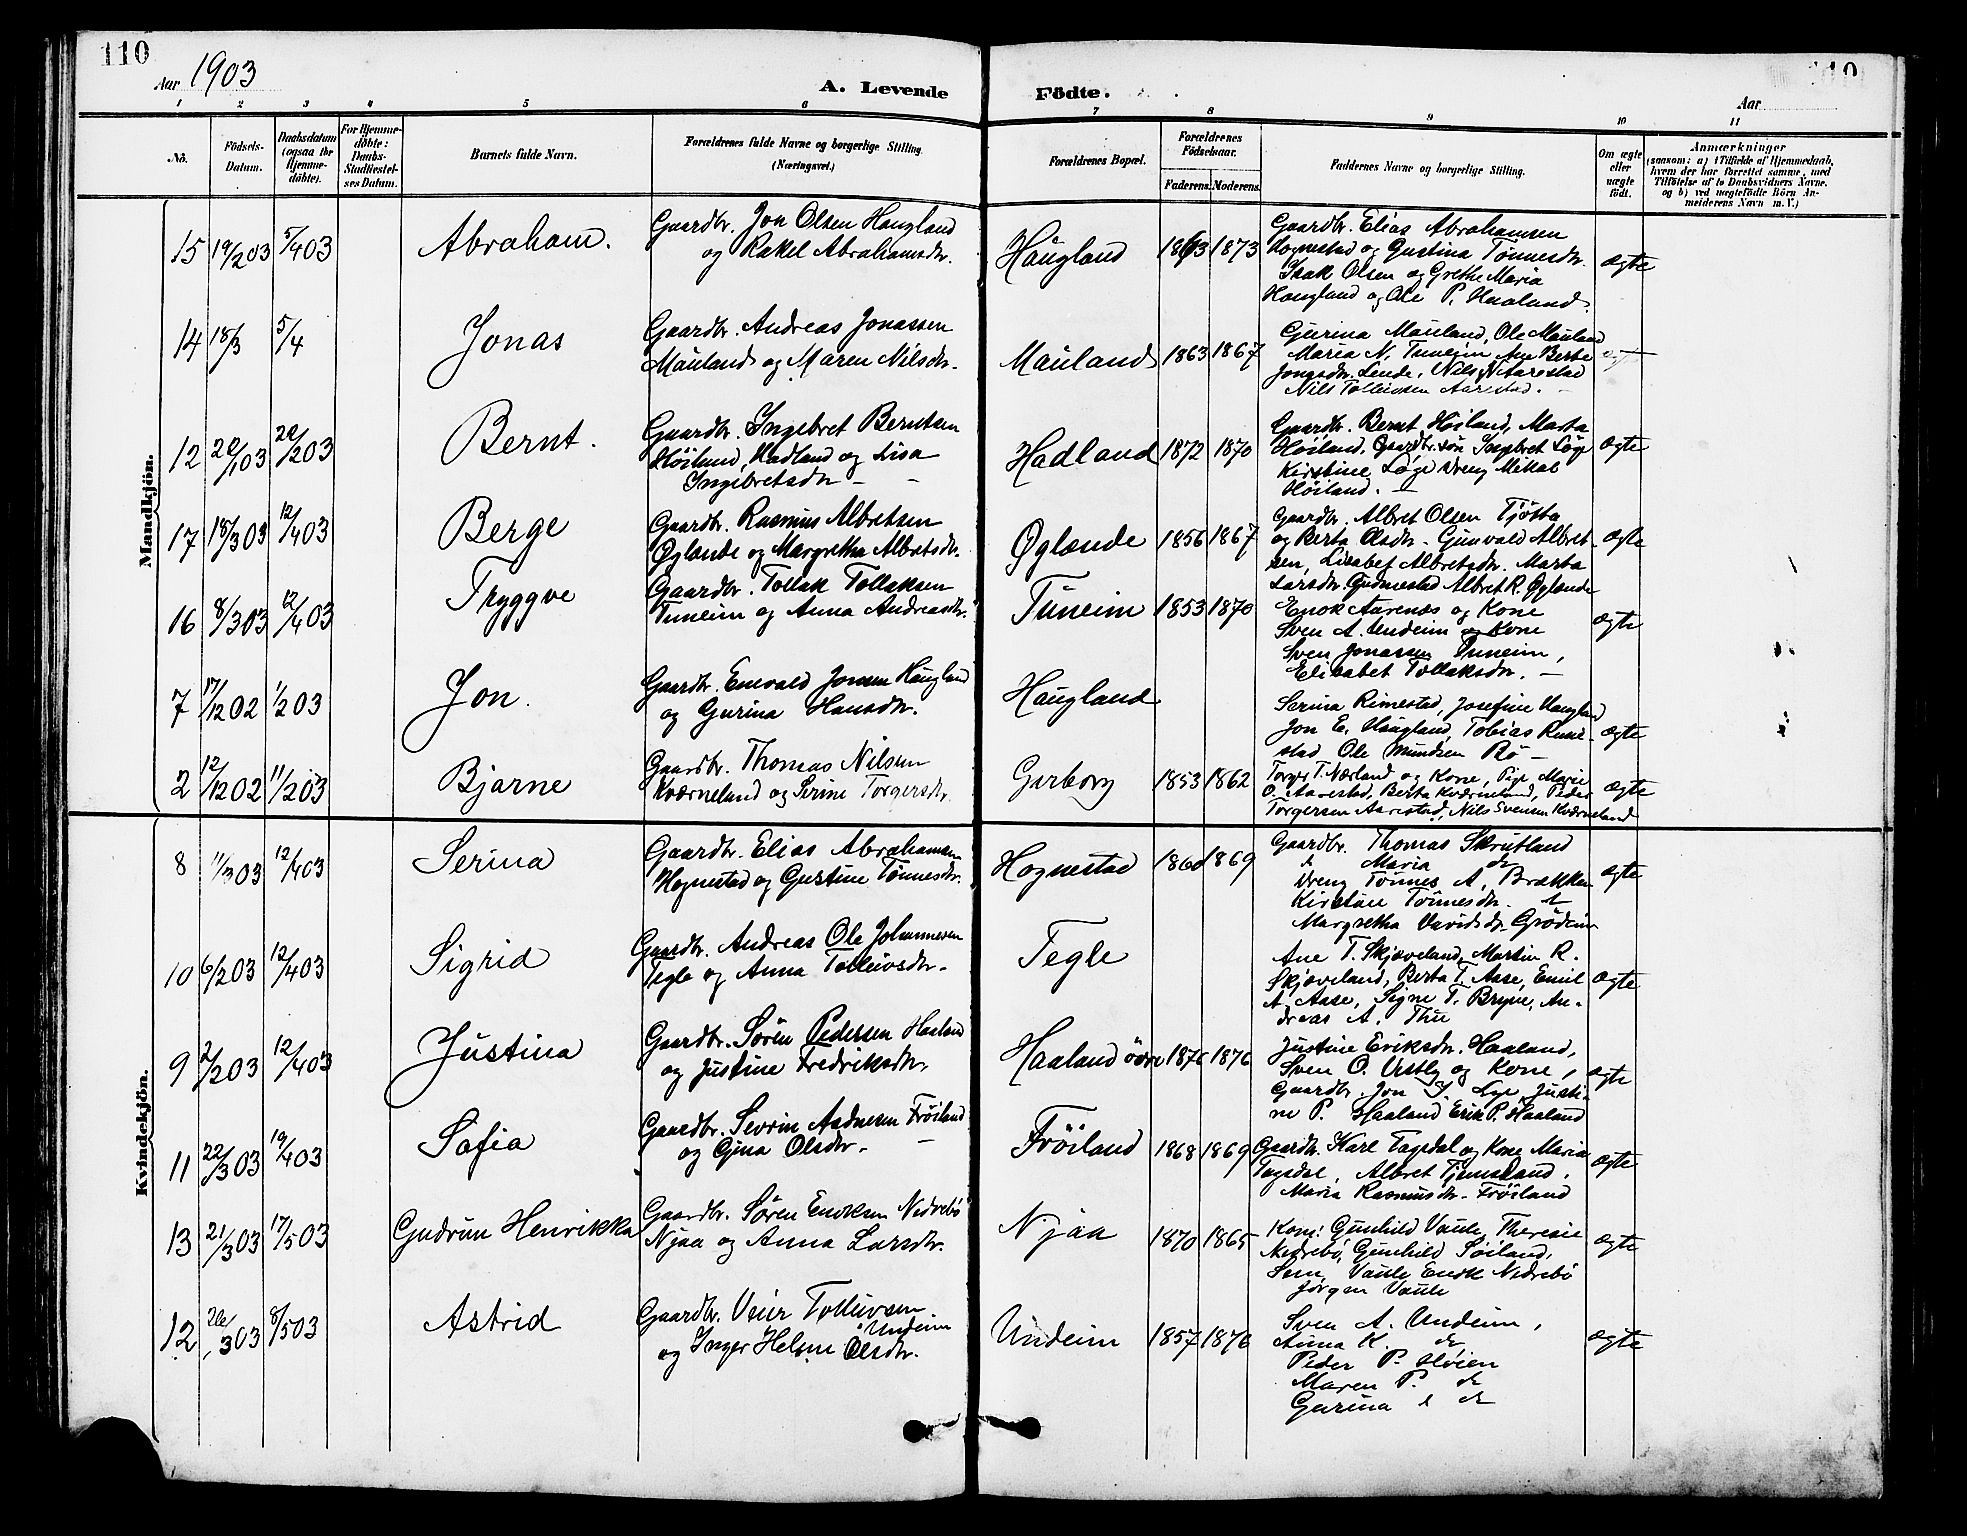 110
Aar 1903
A. Levende
Födte.
110
Aar
1 2 3 4 5 6 7 8 9 10 11
No.
Födsels-Datum.
Daabsdatum (ogsaa for Hjemme-döbte).
For Hjemme-döbte: Daabs-Stadfæstel-ses Datum.
Barnets fulde Navn.
Forældrenes fulde Navne og borgerlige Stilling (Næringsvei.)
Forældrenes Bopæl.
Forældrenes Födselsaar.
Faderens. Moderens.
Faddernes Navne og borgerlige Stilling.
Om ægte eller uægte födt.
Anmærkninger
(saasom: a) i Tilfælde af Hjemmedaab,
hvem der har forrettet samme, med
Tilföielse af to Daabsvidners Navne,
og b) ved uægtefödte Börn An-
melderens Navn m. V.)
Mandkjön.
15 19/2 03 5/4 03 Abraham. Gaardbr. Jon Olsen Haugland
og Rakel Abrahamsdtr.
Haugland 1863 1873 Gaardbr. Elias Abrahamsen
Hognestad og Gustina Tönnesdtr.
Isak Olsen og Grethe Maria
Haugland og Ole P. Haaland.
ægte
14 18/3 5/4 Jonas Gaardbr. Andreas Jonassen
Mauland og Maren Nilsdtr.
Mauland 1863 1867 Gurina Mauland, Ole Mauland
Maria N. Tuneim Ane Berte
Jonasdtr. Lende, Nils N Aarestad
Nils Tolleivsen Aarestad.
ægte
12 20/1 03 20/2 03 Bernt. Gaardbr. Ingebret Berntsen
Höiland, Hadland og Lisa
Ingebretsdtr
Hadland 1872 1870 Gaardbr. Bernt Höiland, Marta
Höiland, Gaardbr. sön Ingebret Löge
Kirstine Löge Dreng Mikal
Höiland.
ægte
17 18/3 03 12/4 03 Berge Gaardbr. Rasmus Albretsen
Øglænde og Margretha Albretsdtr.
Øglænde 1856 1867 Gaardbr. Albret Olsen Tjötta
og Berta Olsdtr. Gunvald Albret-
sen, Lisabet Albretsdtr. Marta
Larsdtr. Gudmestad Albret R. Øglænde
ægte
16 8/3 03 12/4 03 Tryggve Gaardbr. Tollak Tollaksen
Tuneim og Anna Andreasdtr.
Tuneim 1853 1870 Enok Aarenæs og Kone
Sven A. Undeim og Kone
Sven Jonassen Tuneim,
Elisabet Tollaksdtr.
ægte
7 17/12 02 1/2 03 Jon. Gaardbr. Enevald Jonsen Haugland
og Gurina Hansdtr.
Haugland
Serina Rimestad, Josefine Haugland
Jon E. Haugland, Tobias Rime-
stad Ole Mundsen Bö
ægte
2 12/12 02 11/2 03 Bjarne Gaardbr. Thomas Nilsen
Kværneland og Serine Torgersdtr.
Garborg 1853 1862 Torger T. Nærland og Kone, Pige Marie
O. Aarestad, Berta Kværneland, Peder
Torgersen Aarestad, Nils Svensen Kværneland
ægte
Kvindekjön.
8 11/3 03 12/4 03 Serina Gaardbr. Elias Abrahamsen
Hognestad og Gustine Tönnesdtr.
Hognestad 1860 1869 Gaardbr. Thomas Skrutland
Maria do
Dreng Tönnes A. Brækken
Kirstine Tönnesdtr.
Margretha Davidsdtr. Grödeim
ægte
10 6/2 03 12/4 03 Sigrid Gaardbr. Andreas Ole Johannesen
Tegle og Anna Tolleivsdtr.
Tegle
Ane T. Skjæveland, Martin R.
Skjæveland, Berta T. Aase, Emil
A. Aase, Signe T. Bryne, An-
dreas A. Thu
ægte
9 2/2 03 12/4 03 Justina Gaardbr. Sören Pedersen Haaland
og Justine Fredriksdtr.
Haaland övre 1876 1876 Justine Eriksdtr. Haaland,
Sven O. Vestly og Kone,
Gaardbr. Jon J. Lye, Justi-
ne P. Haaland Erik P. Haaland
ægte
11 22/3 03 19/4 03 Safia Gaardbr. Sevrin Aadnesen Fröiland
og Gjina Olsdtr.
Fröiland 1868 1869 Gaardbr. Karl Tagsdal og Kone Maria
Tagsdal, Albret Tjemsland,
Maria Rasmusdtr. Fröiland
ægte
13 21/3 03 17/5 03 Gudrun Henrikka Gaardbr. Sören Enoksen Nedrebö
Njaa og Anna Larsdtr.
Njaa 1870 1865 Kone Gunhild Vaule, Theresie
Nedrebö, Gunhild Söiland,
Sven Vaule Enok Nedrebö
Jörgen Vaule
ægte
12 26/3 03 8/5 03 Astrid Gaardbr. Veier Tolleivsen
Undeim
og Inger Helene Olsdtr.
Undeim 1857 1876 Sven A. Undeim,
Anna K. do
Peder P. Höien
Maren P. do
Gurina do
ægte